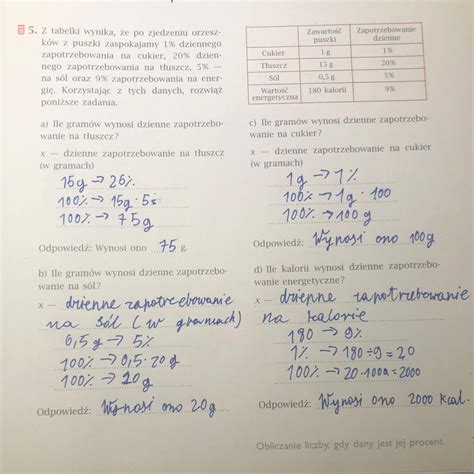 5. Z tabelki wynika, że po zjedzeniu orzesz-
ków z puszki zaspokajamy 1% dziennego
zapotrzebowania na cukier, 20% dzien-
nego zapotrzebowania na tłuszcz, 5% —
na sól oraz 9% zapotrzebowania na ener-
gię. Korzystając z tych danych, rozwiąż
poniższe zadania.
Zawartość puszki Zapotrzebowanie dzienne
Cukier 1 g 1%
Tłuszcz 15 g 20%
Sól 0,5 g 5%
Wartość energetyczna 180 kalorii 9%
a) Ile gramów wynosi dzienne zapotrzebo-
wanie na tłuszcz?
x — dzienne zapotrzebowanie na tłuszcz
(w gramach)
15g → 20%
100% → 15g · 5
100% → 75g
Odpowiedź: Wynosi ono 75 g.
b) Ile gramów wynosi dzienne zapotrzebo-
wanie na sól?
x — dzienne zapotrzebowanie
na sól (w gramach)
0,5g → 5%
100% → 0,5 · 20g
100% → 20g
Odpowiedź: Wynosi ono 20g
c) Ile gramów wynosi dzienne zapotrzebo-
wanie na cukier?
x — dzienne zapotrzebowanie na cukier
(w gramach)
1g → 1%
100% → 1g · 100
100% → 100g
Odpowiedź: Wynosi ono 100g
d) Ile kalorii wynosi dzienne zapotrzebo-
wanie energetyczne?
x — dzienne zapotrzebowanie
na kalorie
180 → 9%
1% → 180÷9=20
100% → 20·100=2000
Odpowiedź: Wynosi ono 2000 kcal.
Obliczanie liczby, gdy dany jest jej procent